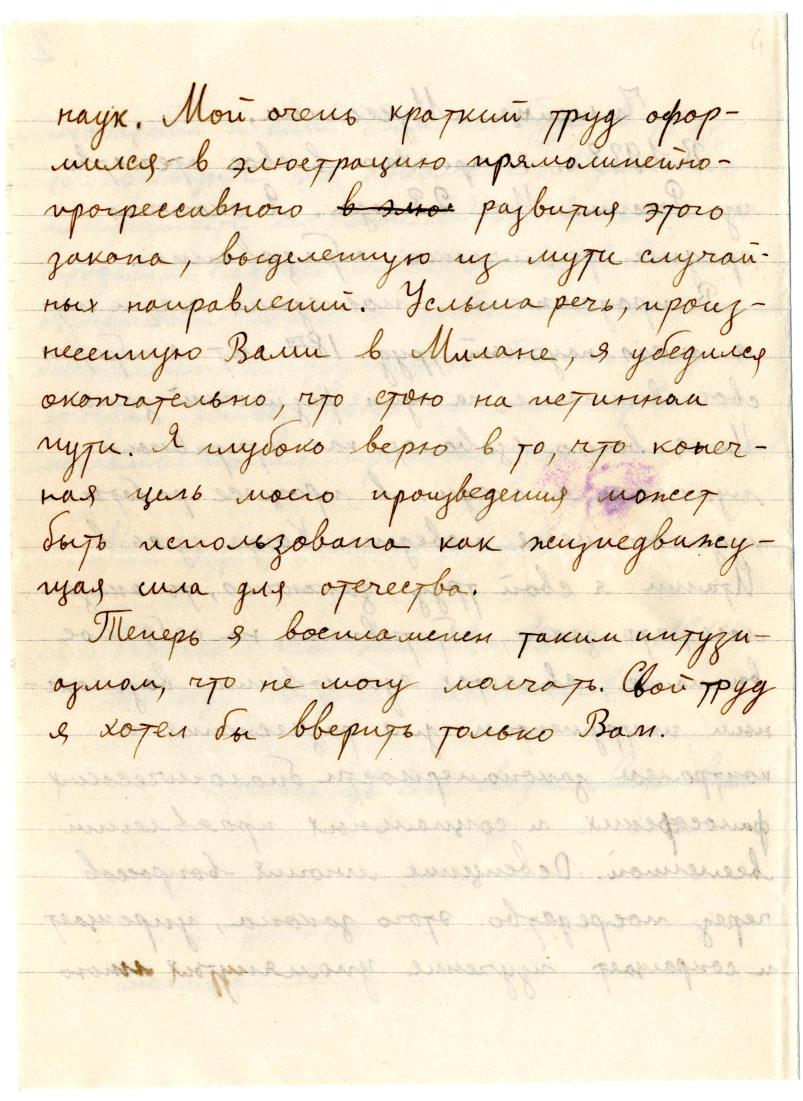 наук. Мой очень краткий труд офор-
мился в элюстрацию прямолинейно-
прогрессивного в элю развития этого
закона, выделенную из мути случай-
ных направлений. Услыша речь, произ-
несенную Вами в Милане, я убедился
окончательно, что стою на истинном
пути. Я глубоко верю в то, что конеч-
ная цель моего произведения может
быть использована как жизнедвижу-
щая сила для отечества.
Теперь я воспламенен таким интузи-
азмом, что не могу молчать. Свой труд
я хотел бы вверить только Вам.